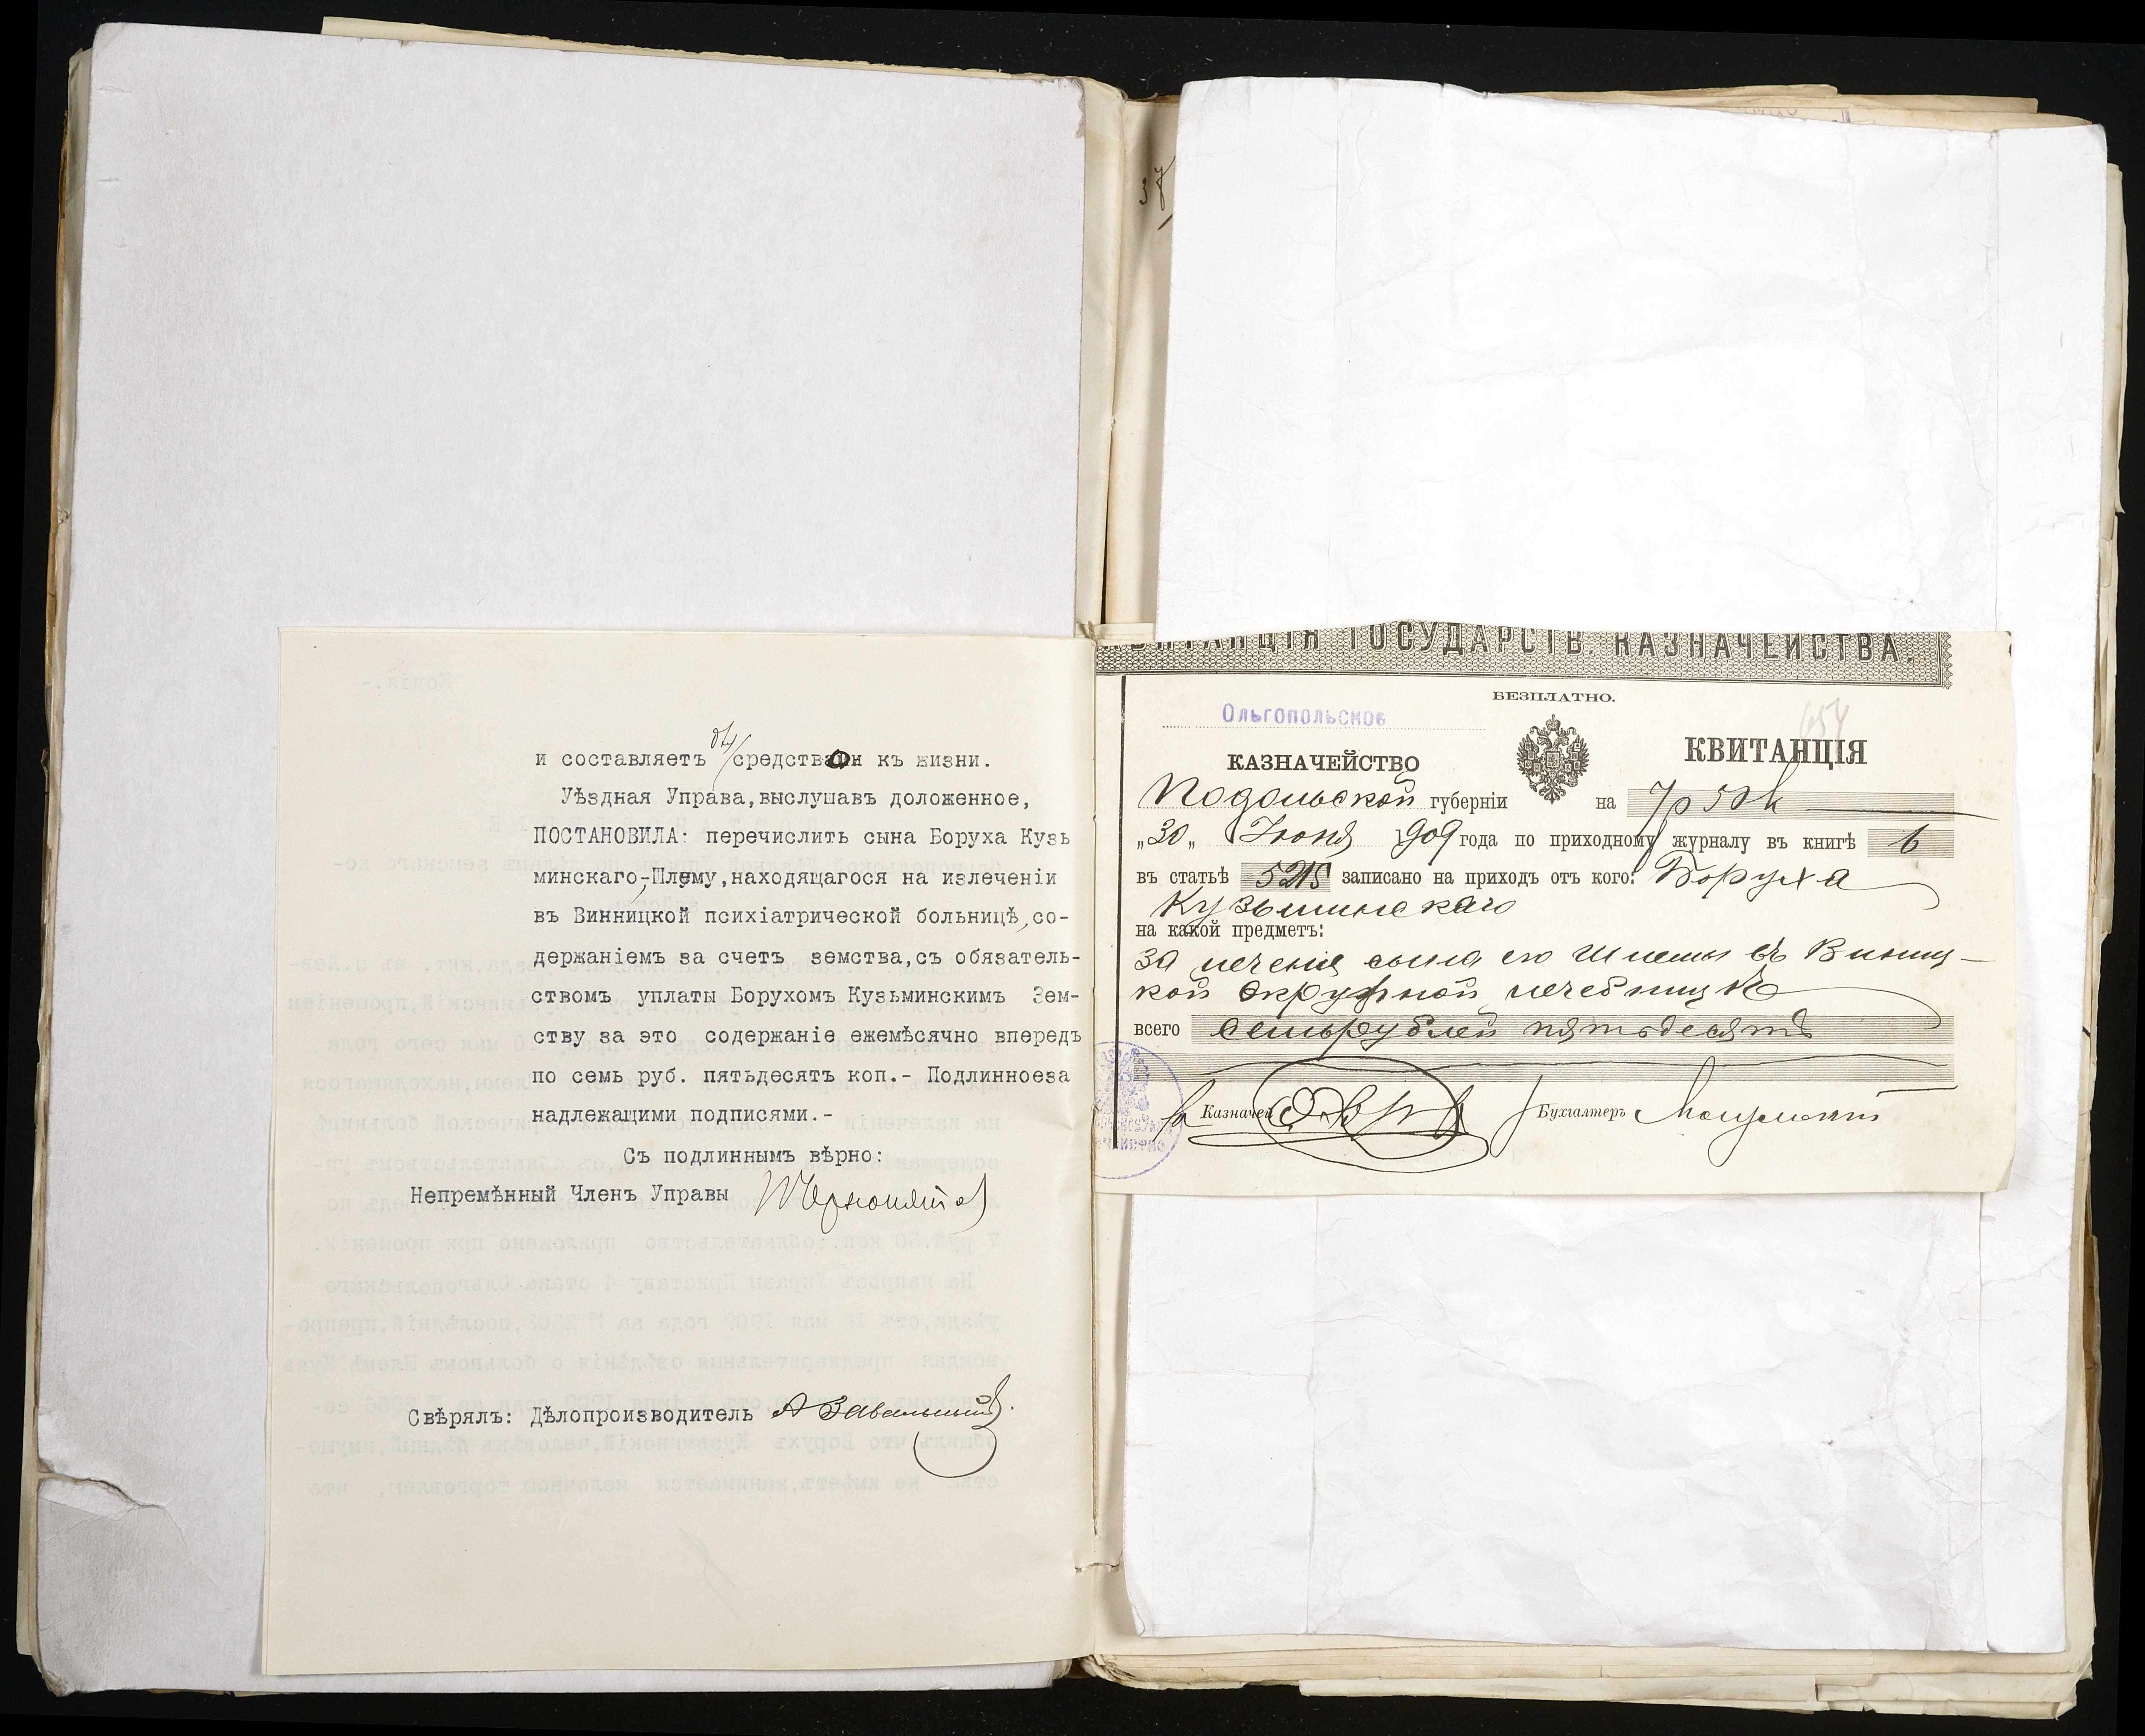 и составляетъ его средство къ жизни.
Уѣздная Управа, выслушавъ доложенное,
ПОСТАНОВИЛА: перечислить сына Боруха Кузь
минскаго,-Шлему, находящагося на излеченіи
въ Винницкой психіатрической больницѣ, со-
держаніемъ за счетъ земства, съ обязатель-
ствомъ уплаты Борухомъ Кузьминскимъ Зем-
ству за это содержаніе ежемѣсячно впередъ
по семь руб. пятьдесятъ коп.- Подлинноеза
надлежащими подписями.-
Съ подлиннымъ вѣрно:
Непремѣнный Членъ Управы
Свѣрялъ: Дѣлопроизводитель
37
КВИТАНЦІЯ ГОСУДАРСТВ. КАЗНАЧЕЙСТВА.
БЕЗПЛАТНО.
Ольгопольское
654
КАЗНАЧЕЙСТВО КВИТАНЦІЯ
Подольской губерніи на 7р 50к
„30„ Іюня 1909 года по приходному журналу въ книгѣ 6
въ статьѣ 5215 записано на приходъ отъ кого: Боруха
Кузьминскаго
на какой предметъ:
за лечение сына его Шлемы въ Винниц-
кой окружной лечебницѣ
всего семь рублей пятьдесятъ
Казначей Бухгалтеръ